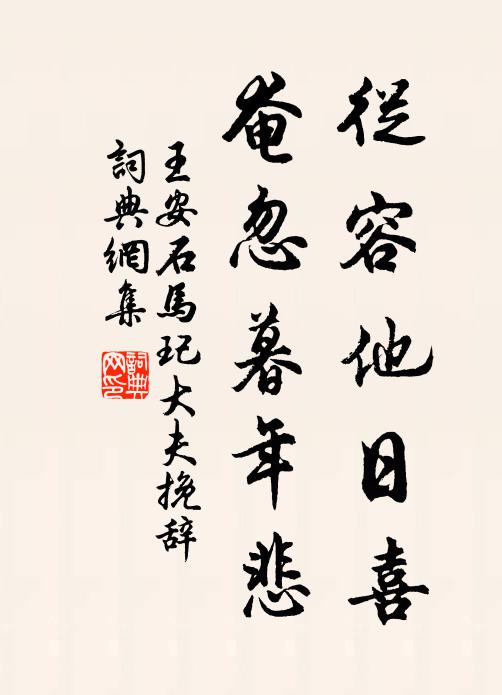 從容他日喜
奄忽暮年悲
王安石馬玘大夫挽辞
詞典網集
詞典
网印